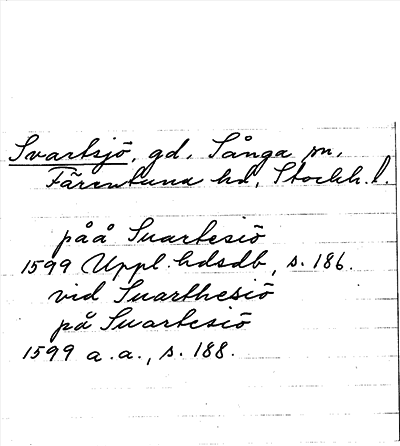 Svartsjö, gd, Sånga sn,
Färentuna hd, Stockh. l.
påå Suartesiö
1599 Uppl. hdsdb, s. 186.
vid Suarthesiö
på Suartesiö
1599 a. a., s. 188.